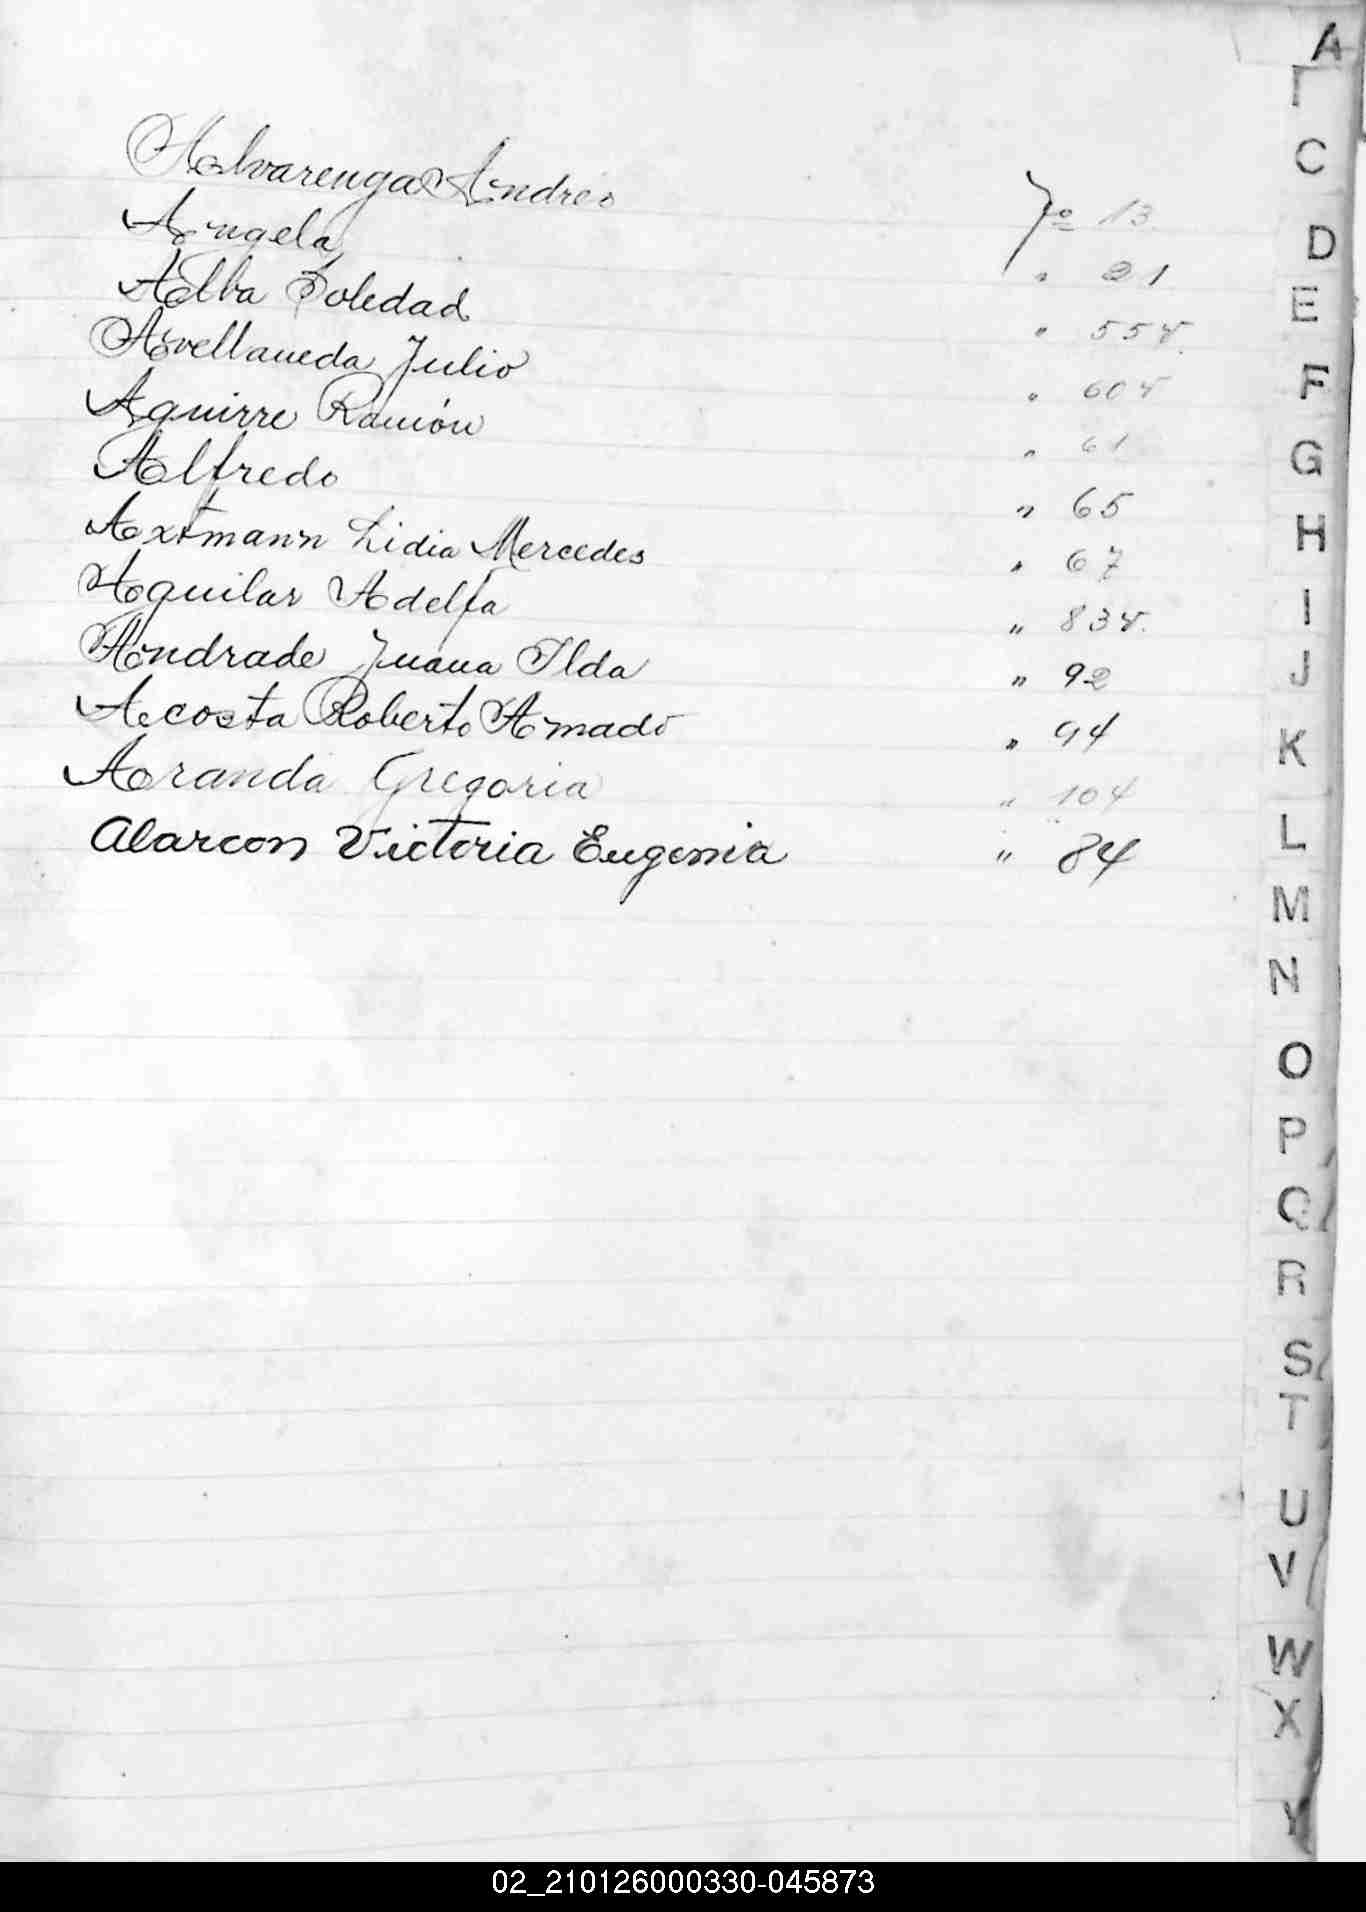 A
C
D
E
F
G
H
I
J
K
L
M
N
O
P
Q
R
S
T
U
V
W
X
Y
Alvarenga Andres Fº 13
Angela " 21
Alba Soledad " 55 v.
Avellaneda Julio " 60 v
Aguirre Ramón " 61
Alfredo " 65
Axtmann Lidia Mercedes " 67
Aguilar Adelfa " 83 v.
Andrade Juana Ilda " 92
Acosta Roberto Amado " 94
Aranda Gregoria " 104
Alarcon Victoria Eugenia " 84
02_210126000330-045873